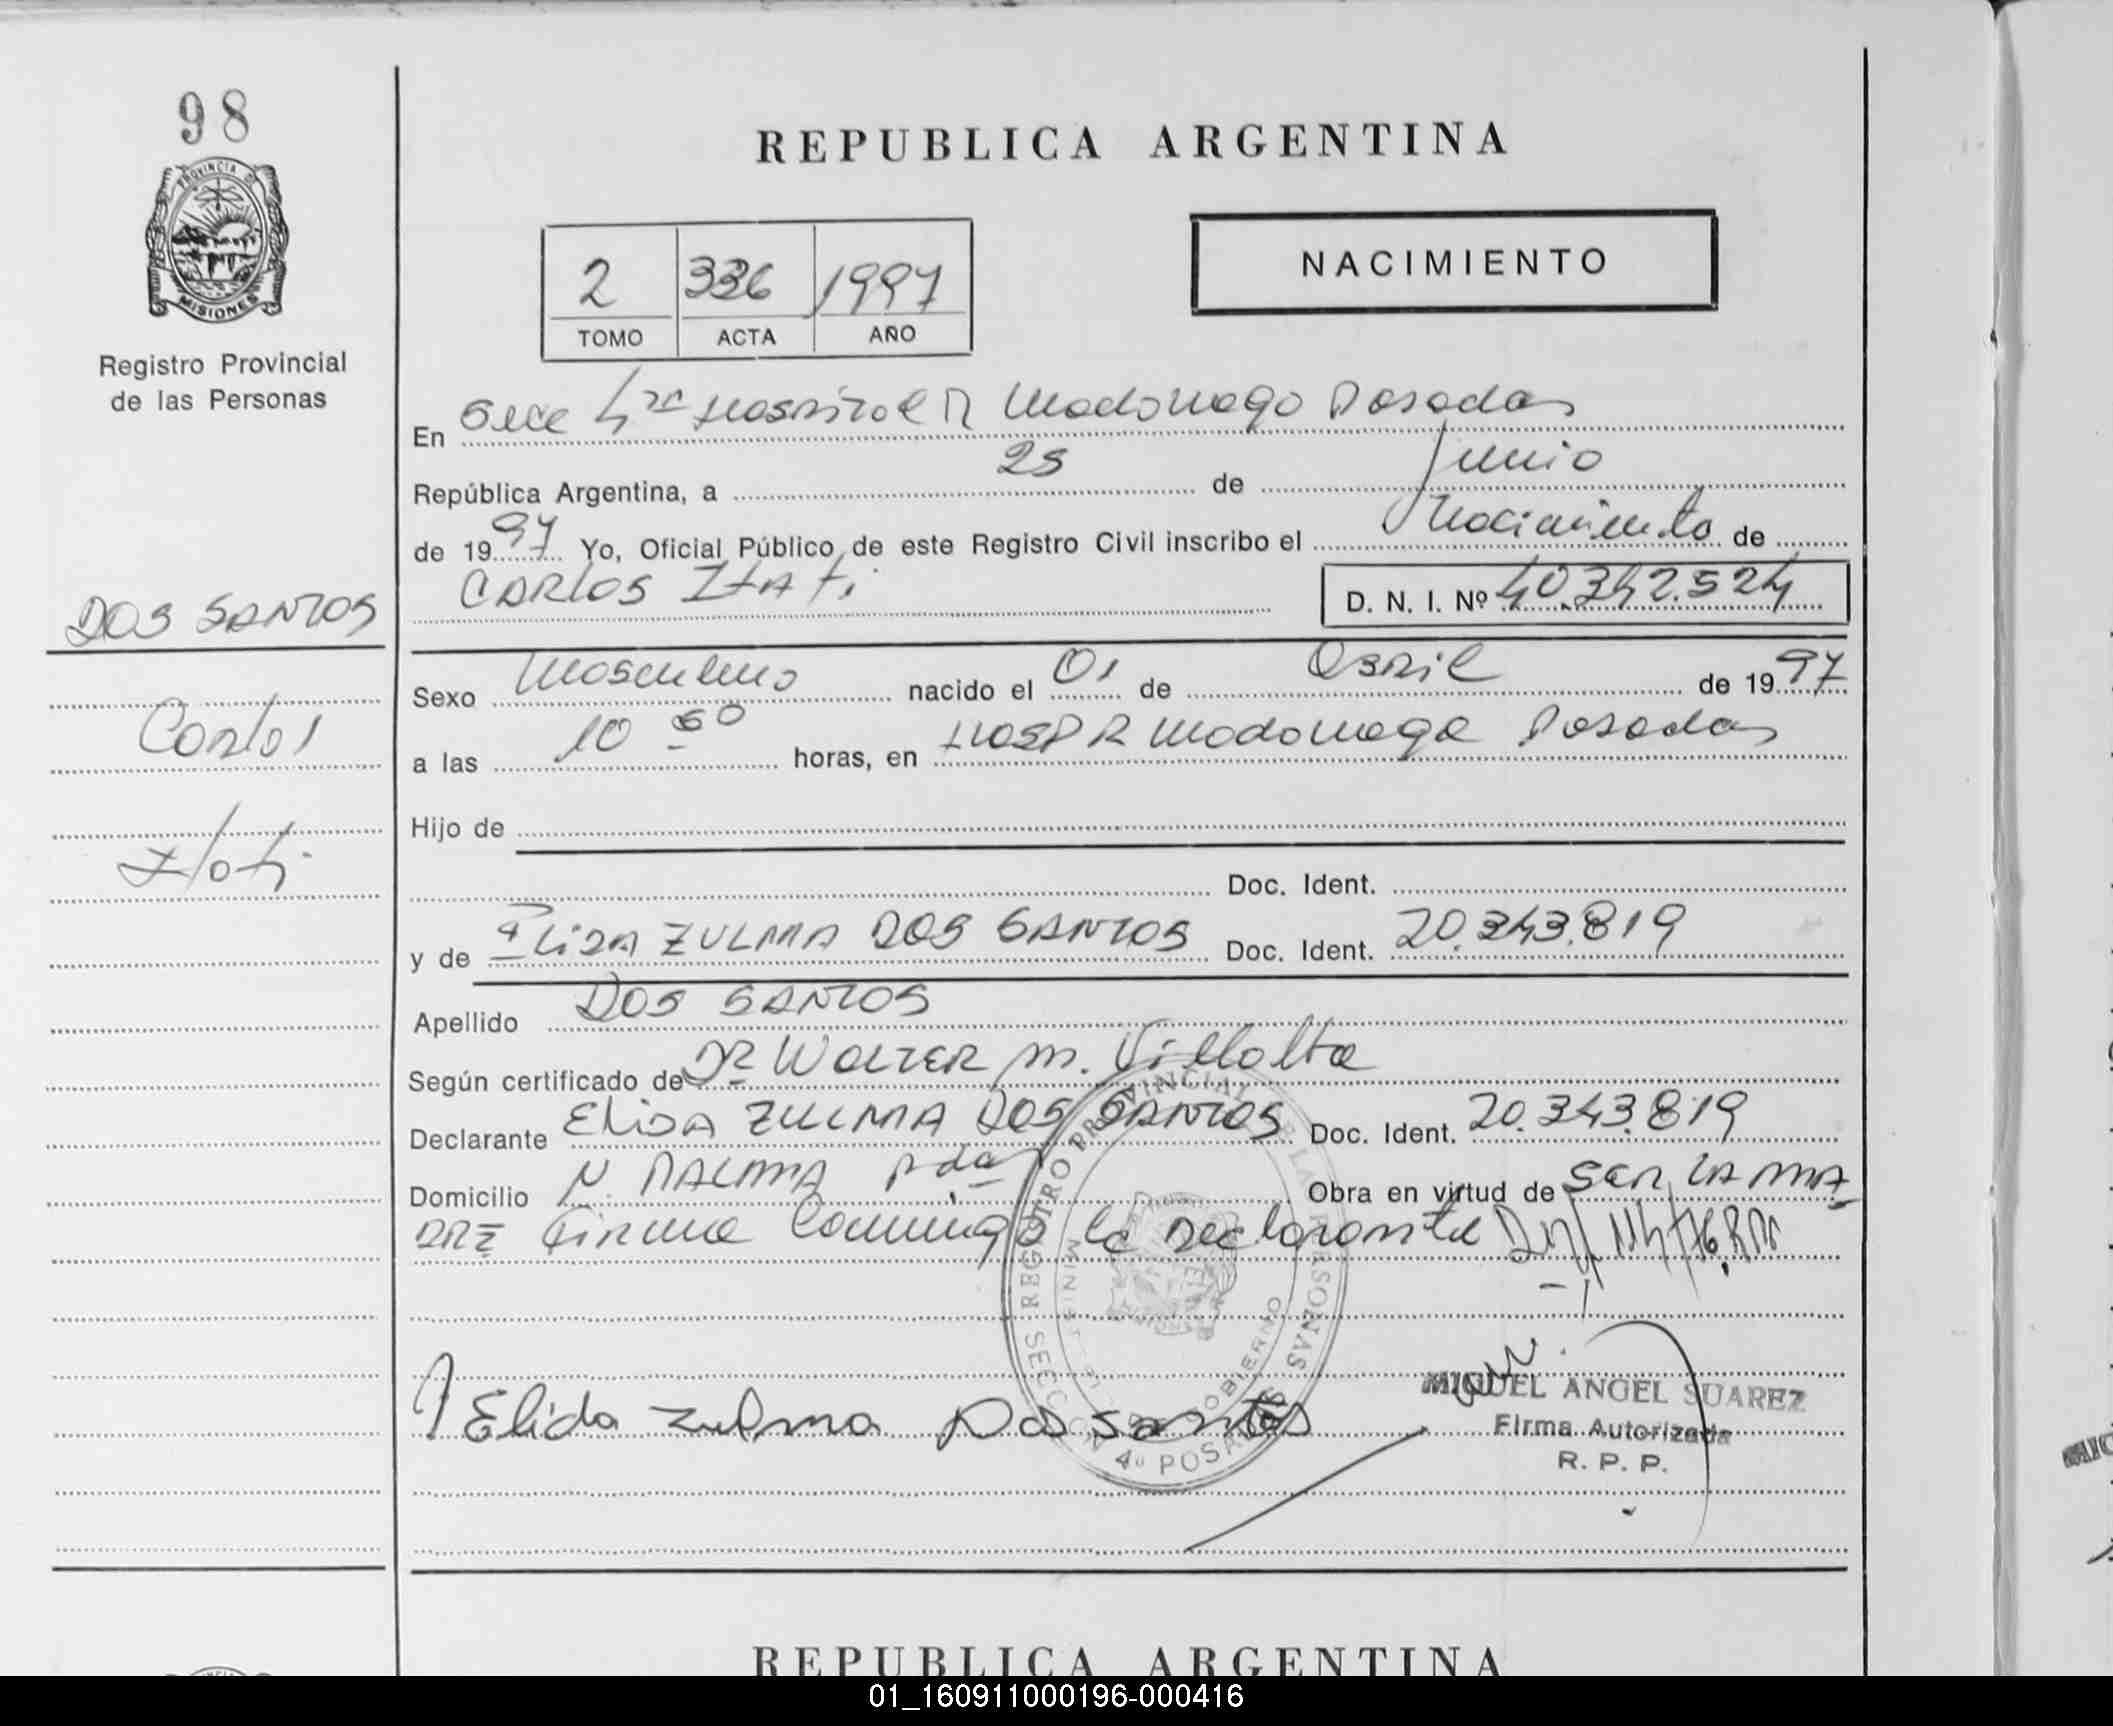 98
PROVINCIA DE
MISIONES
Registro Provincial
de las Personas
DOS SANTOS
Carlos
Itati
REPUBLICA ARGENTINA
2 336 1997
TOMO ACTA AÑO
NACIMIENTO
En Secc 4ta Hospital R Madariaga Posadas
República Argentina, a 25 de Junio
de 1997 Yo, Oficial Público de este Registro Civil inscribo el Nacimiento de
CARLOS ITATI D. N. I. Nº 40.342.524
Sexo Masculino nacido el 01 de Abril de 1997
a las 10 horas, en HOSP R Madariaga Posadas
Hijo de
Doc. Ident.
y de ELIDA ZULMA DOS SANTOS Doc. Ident. 20.343.819
Apellido DOS SANTOS
Según certificado de DR WALTER M. Villalba
Declarante ELIDA ZULMA DOS SANTOS Doc. Ident. 20.343.819
Domicilio N. PALMA Pdas Obra en virtud de SER LA MA
DRE Firma Conmigo la Declarante
REGISTRO PROVINCIAL DE LAS PERSONAS
SECCION 4º POSADAS
Elida Zulma Dos Santos
MIGUEL ANGEL SUAREZ
Firma Autorizada
R. P. P.
REPUBLICA ARGENTINA
01_160911000196-000416